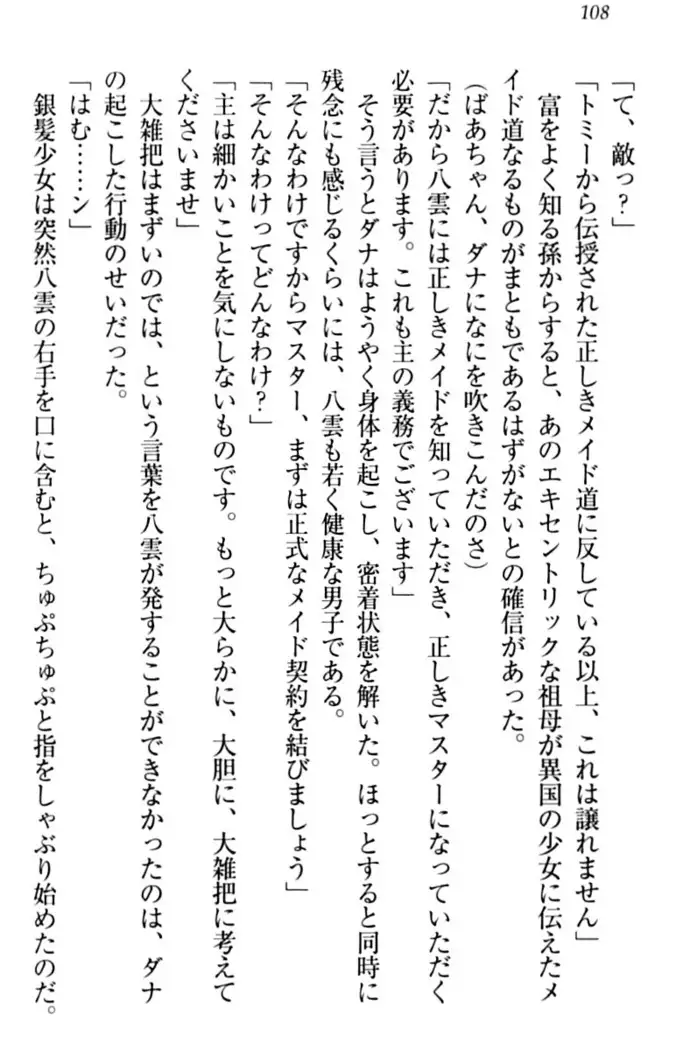 108
「て、敵っ？」
「トミーから伝授された正しきメイド道に反している以上、これは譲れません」
富をよく知る孫からすると、あのエキセントリックな祖母が異国の少女に伝えたメ
イド道なるものがまともであるはずがないとの確信があった。
(ばあちゃん、ダナになにを吹きこんだのさ)
「だから八雲には正しきメイドを知っていただき、正しきマスターになっていただく
必要があります。これも主の義務でございます」
そう言うとダナはようやく身体を起こし、密着状態を解いた。ほっとすると同時に
残念にも感じるくらいには、八雲も若く健康な男子である。
「そんなわけですからマスター、まずは正式なメイド契約を結びましょう」
「そんなわけってどんなわけ？」
「主は細かいことを気にしないものです。もっと大らかに、大胆に、大雑把に考えて
くださいませ」
大雑把はまずいのでは、という言葉を八雲が発することができなかったのは、ダナ
の起こした行動のせいだった。
「はむ……ン」
銀髪少女は突然八雲の右手を口に含むと、ちゅぷちゅぷと指をしゃぶり始めたのだ。